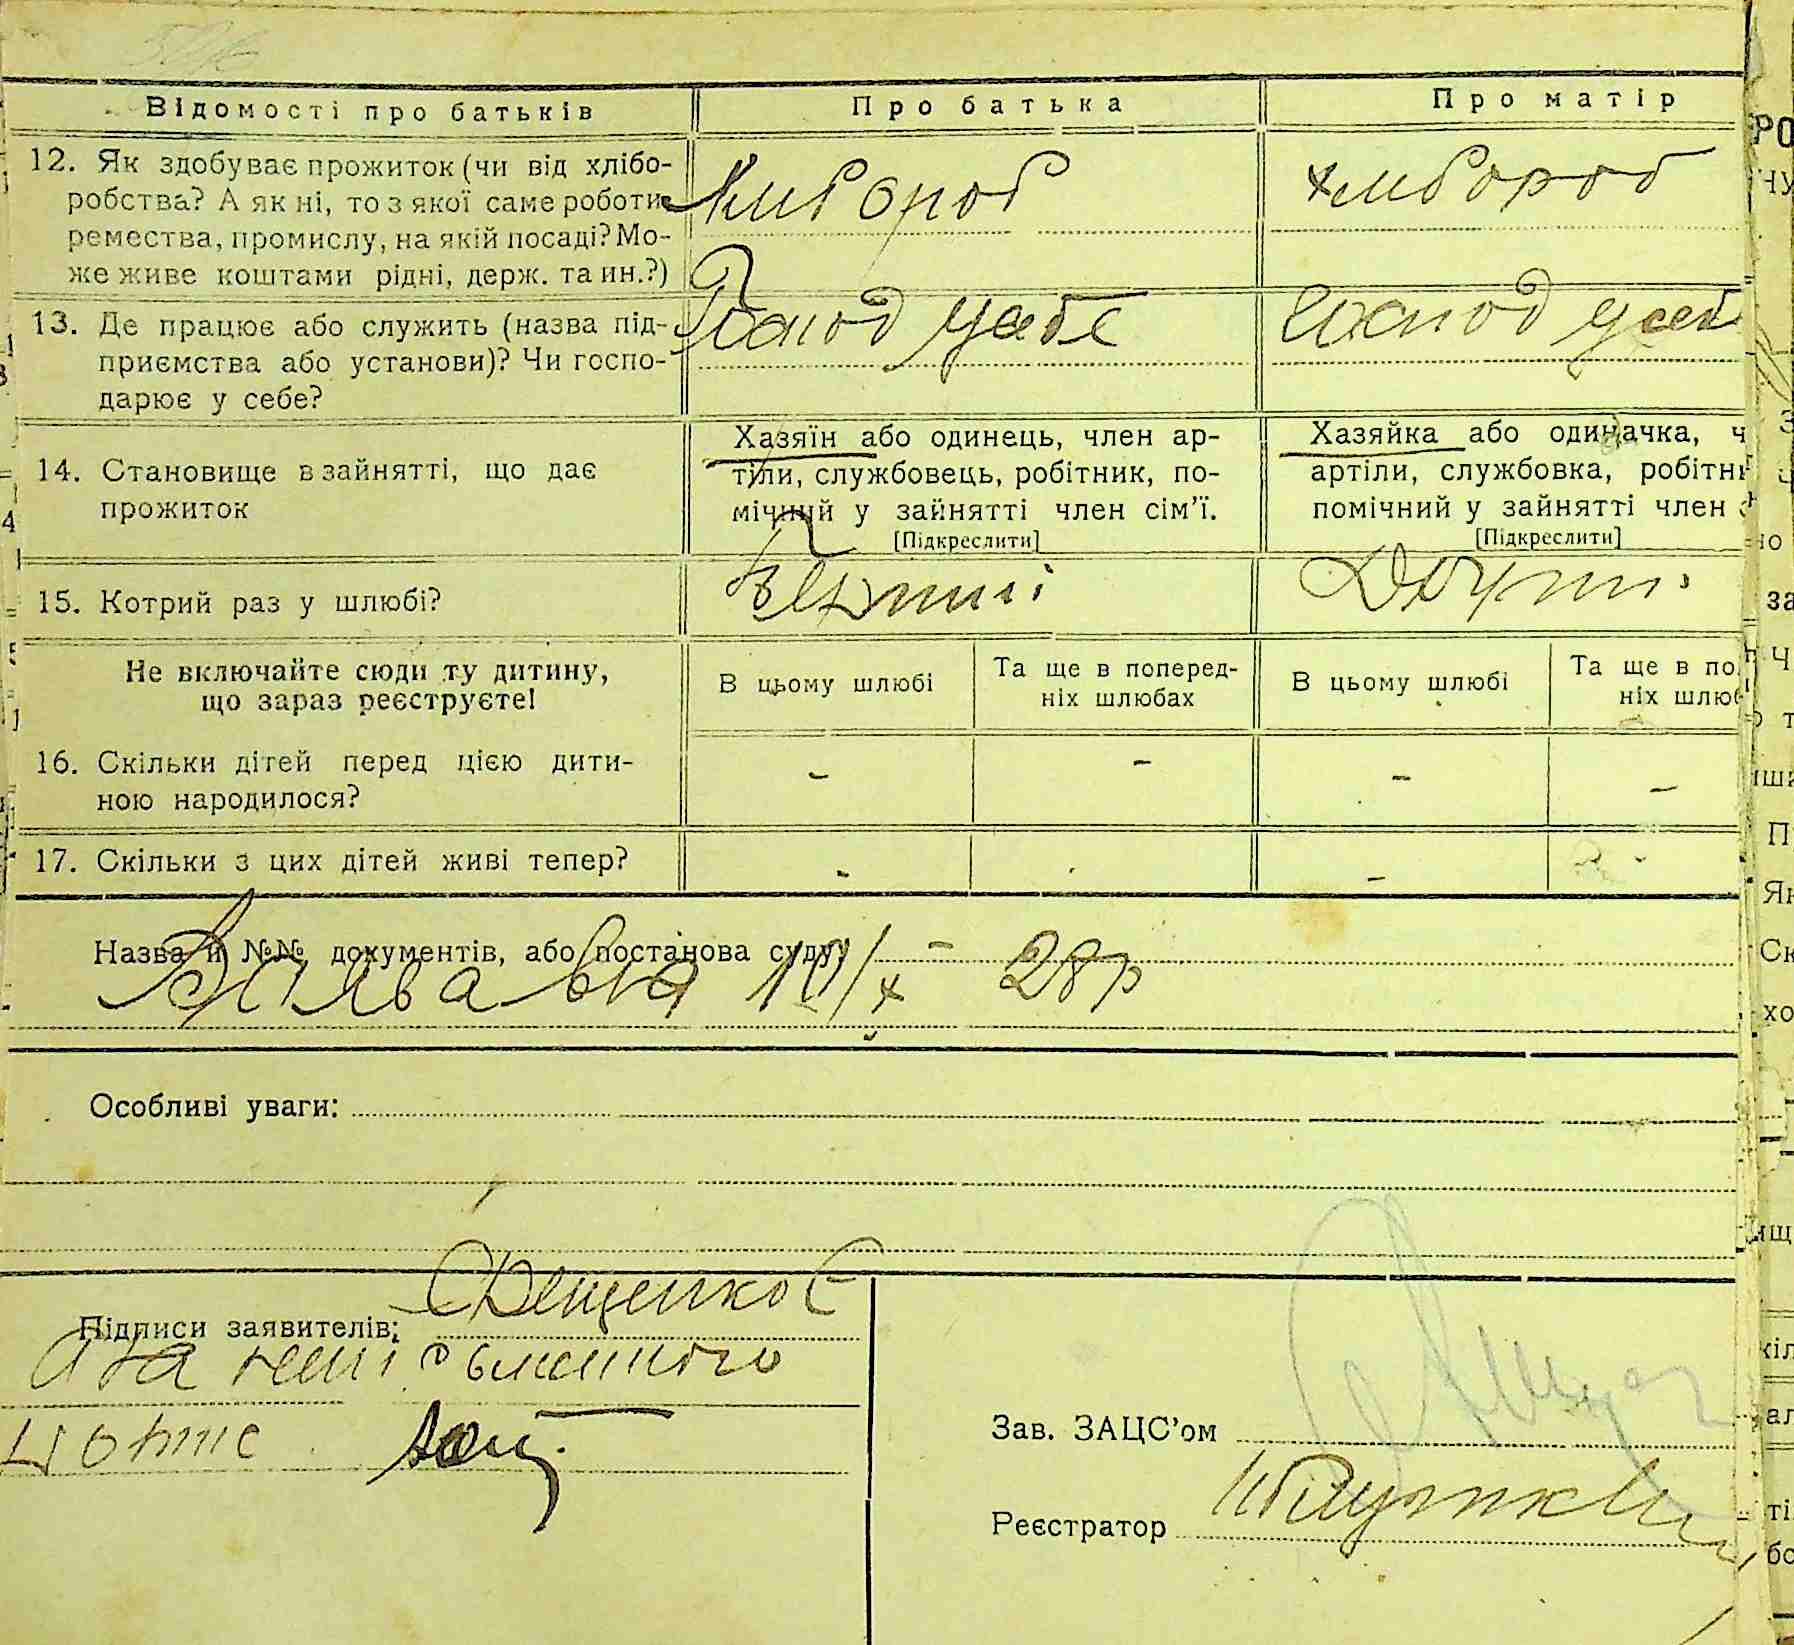 Відомості про батьків Про батька Про матір
12. Як здобуває прожиток (чи від хлібо-
робства? А як ні, то з якої саме роботи
ремества, промислу, на якій посаді? Мо-
же живе коштами рідні, держ. та ин.?)
хлибороб хлибороб
13. Де працює або служить (назва під-
приємства або установи)? Чи госпо-
дарює у себе?
Господ усебе Господ усеб
14. Становище в зайнятті, що дає
прожиток
Хазяїн або одинець, член ар-
тіли, службовець, робітник, по-
мічний у зайнятті член сім'ї.
[Підкреслити]
Хазяйка або одиначка, ч
артіли, службовка, робітн
помічний у зайнятті член
[Підкреслити]
15. Котрий раз у шлюбі? Перший Други
Не включайте сюди ту дитину,
що зараз реєструєте!
В цьому шлюбі
Та ще в поперед-
ніх шлюбах
В цьому шлюбі
Та ще в по
ніх шлюб
16. Скільки дітей перед цією дити-
ною народилося?
- - - -
17. Скільки з цих дітей живі тепер?
- - -
Назва й №№ документів, або постанова суду:
10/X - 28р
Особливі уваги:
Підписи заявителів:
А за
Зав. ЗАЦС'ом
Реєстратор